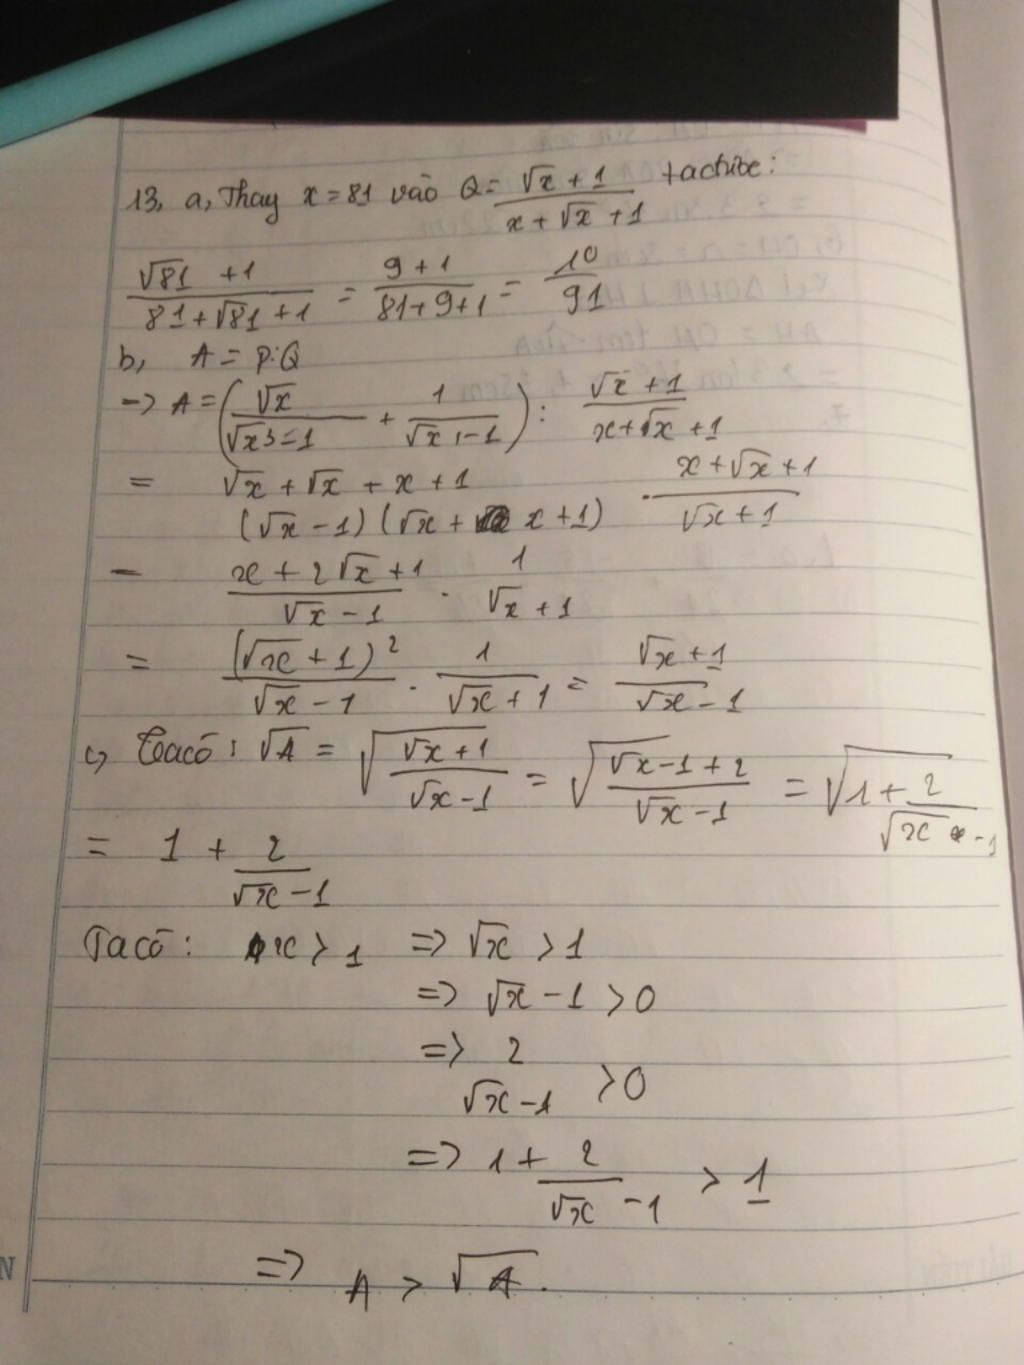 13, a, Thay x = 81 vào Q = (√x + 1)/(x + √x + 1) ta được:
(√81 + 1)/(81 + √81 + 1) = (9 + 1)/(81 + 9 + 1) = 10/91
b, A = P:Q
-> A = (√x/(√x³ - 1) + 1/(√x - 1)) : (√x + 1)/(x + √x + 1)
= (√x + √x + x + 1)/((√x - 1)(√x + x + 1)) · (x + √x + 1)/(√x + 1)
= (x + 2√x + 1)/(√x - 1) · 1/(√x + 1)
= (√x + 1)²/(√x - 1) · 1/(√x + 1) = (√x + 1)/(√x - 1)
c, Ta có: √A = √((√x + 1)/(√x - 1)) = √((√x - 1 + 2)/(√x - 1)) = √(1 + 2/(√x - 1))
= 1 + 2/(√x - 1)
Ta có: x > 1 => √x > 1
=> √x - 1 > 0
=> 2/(√x - 1) > 0
=> 1 + 2/(√x - 1) > 1
=> A > √A.
N